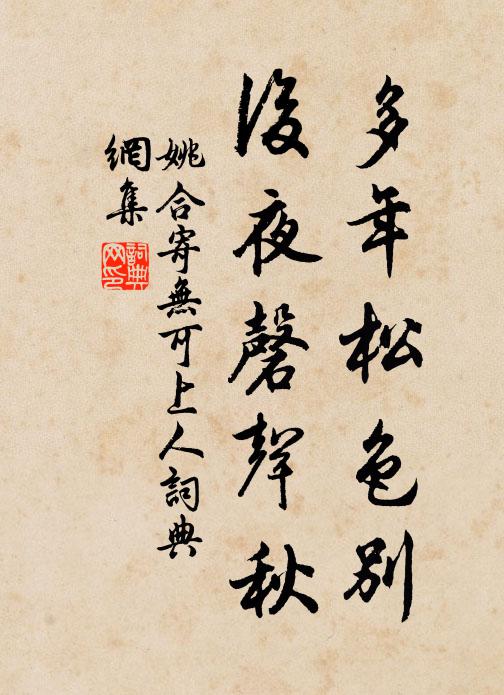 多年松色別
後夜磬聲秋
姚合寄無可上人詞典
網集
詞典
网印